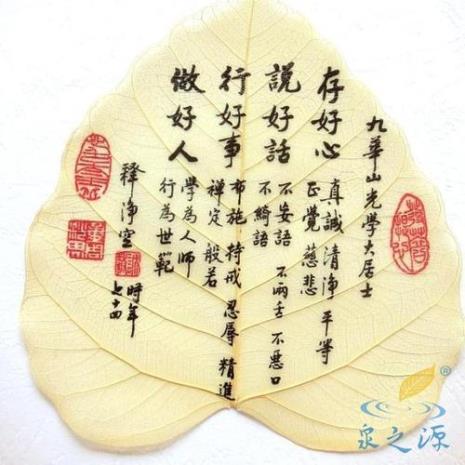 九華山光學大居士
存好心
真誠 清淨 平等
正覺 慈悲
說好話
不妄語 不兩舌 不惡口
不綺語
行好事
布施 持戒 忍辱 精進
禪定 般若
做好人
學為人師
行為世範
釋淨空
時年
七十四
泉之源®